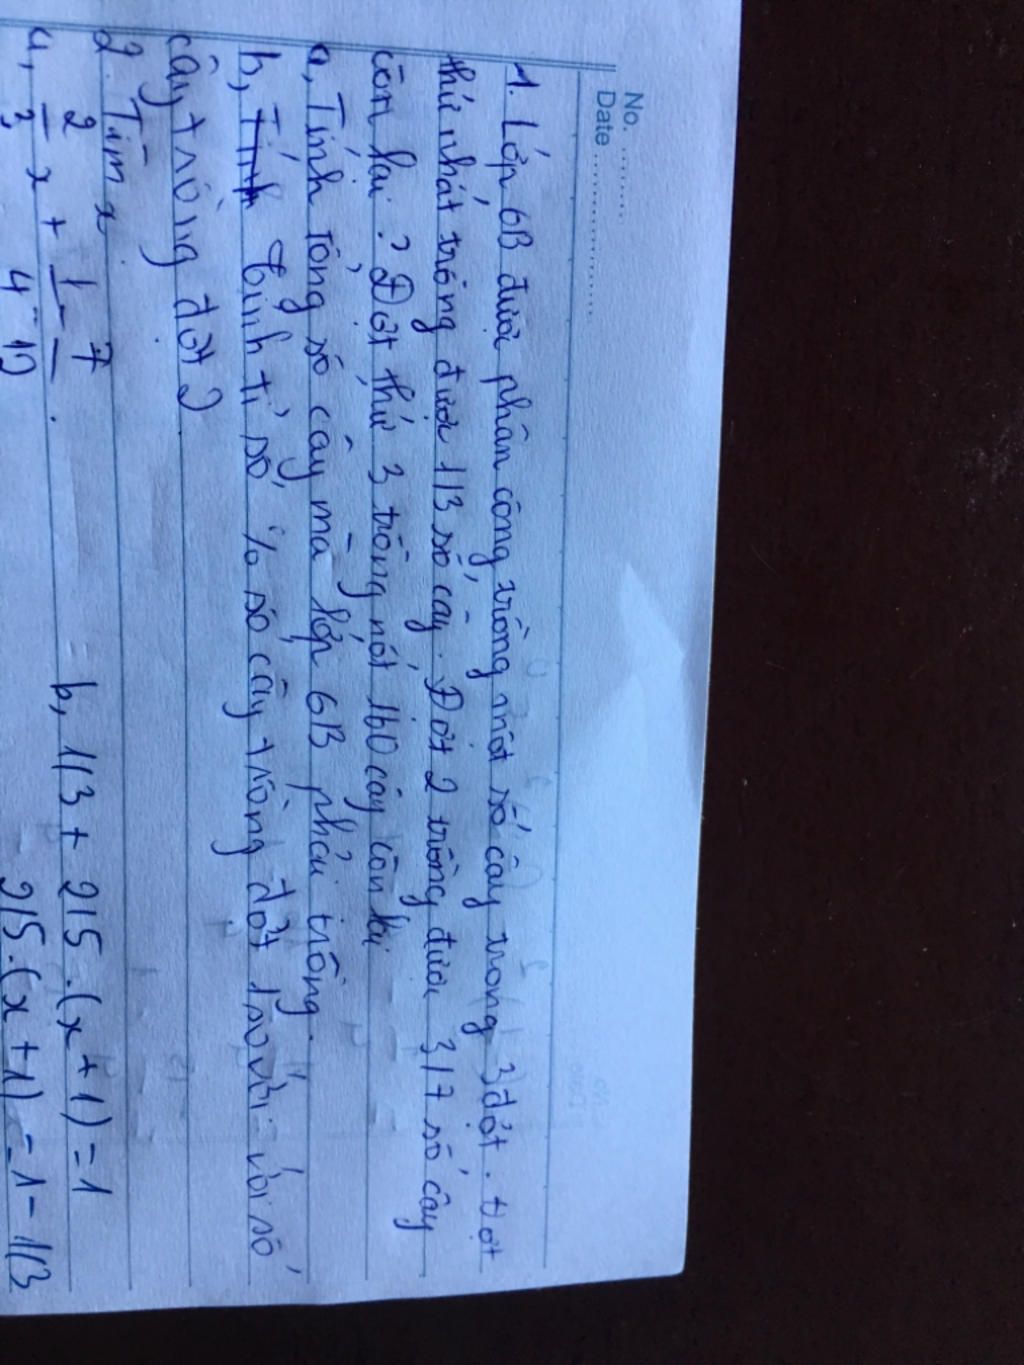 No. .........
Date .....................
1. Lớp 6B được phân công trồng một số cây trong 3 đợt. Đợt
thứ nhất trồng được 1/3 số cây. Đợt 2 trồng được 3/7 số cây
còn lại ? Đợt thứ 3 trồng nốt 160 cây còn lại
a, Tính tổng số cây mà lớp 6B phải trồng.
b, Tính tỉ số % số cây trồng đợt 1 so với số
cây trồng đợt 2
2. Tìm x
a, 2/3 x + 1/4 = 7/12. b, 1/3 + 2/5.(x+1)=1
2/5.(x+1) = 1 - 1/3